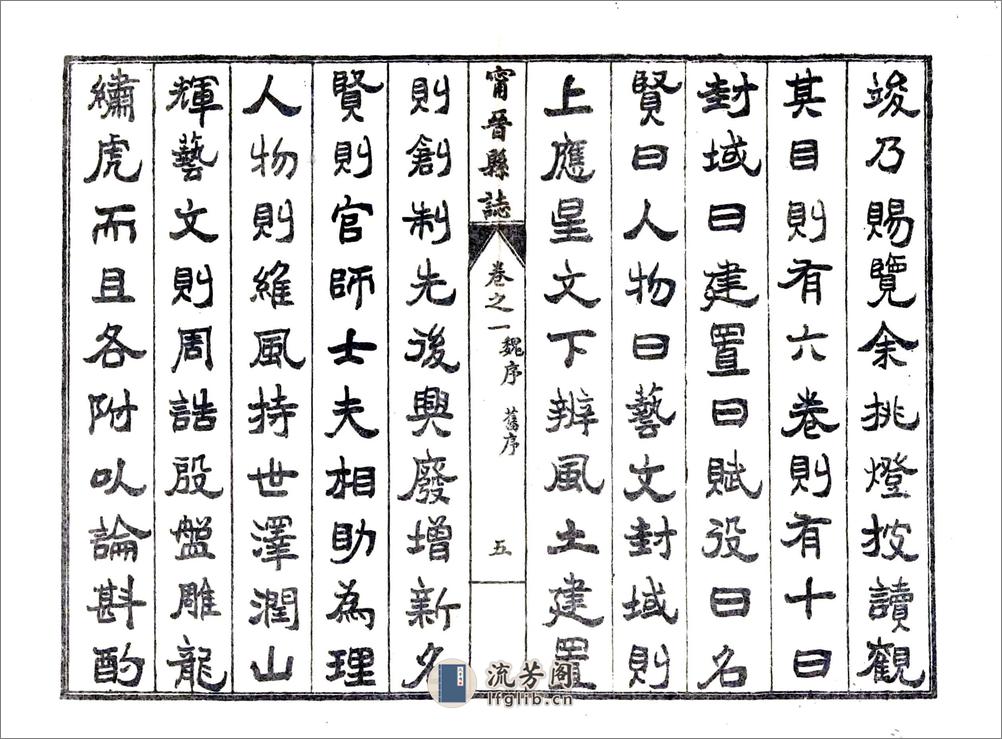 竣乃賜覽余挑燈披讀觀
其目則有六卷則有十曰
封域曰建置曰賦役曰名
賢曰人物曰藝文封域則
上應星文下辨風土建置
甯晉縣誌 卷之一 魏序 舊序 五
則創制先後興廢增新名
賢則官師士夫相助為理
人物則維風持世澤潤山
輝藝文則周誥殷盤雕龍
繡虎而且各附以論斟酌
流芳阁
lfglib.cn